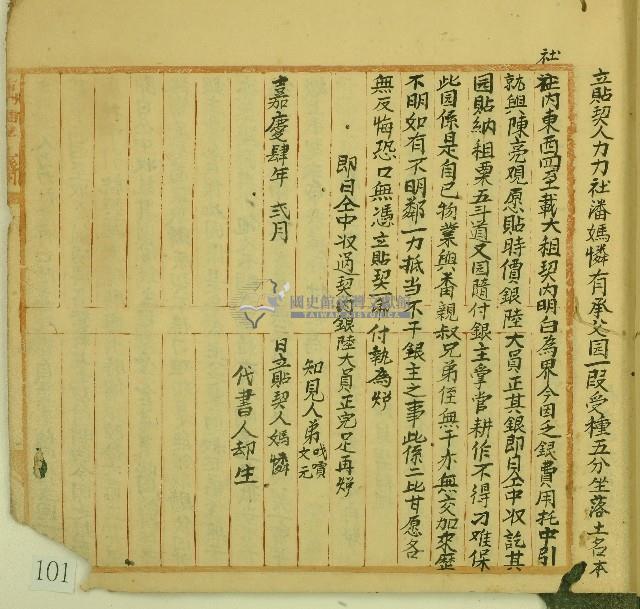 立貼契人力力社潘媽憐有承父园一段受種五分坐落土名本
社
社内東西四至載大租契内明白為界今因乏銀費用托中引
就與陳亮观原貼時價銀陸大員正其銀即日仝中收訖其
园貼納租粟五斗道又园隨付銀主掌管耕作不得刁难保
此园係是自己物業與番親叔兄弟侄無干亦無交加來歷
不明如有不明鄰一力抵当不干銀主之事此係二比甘愿各
無反悔恐口無憑立貼契 付執為炤
即日仝中收過契 銀陸大員正完足再炤
知見人弟 文元
嘉慶肆年 弍月 日立貼契人媽憐
代書人却生
國史館臺灣文獻館
TAIWAN HISTORICA
101